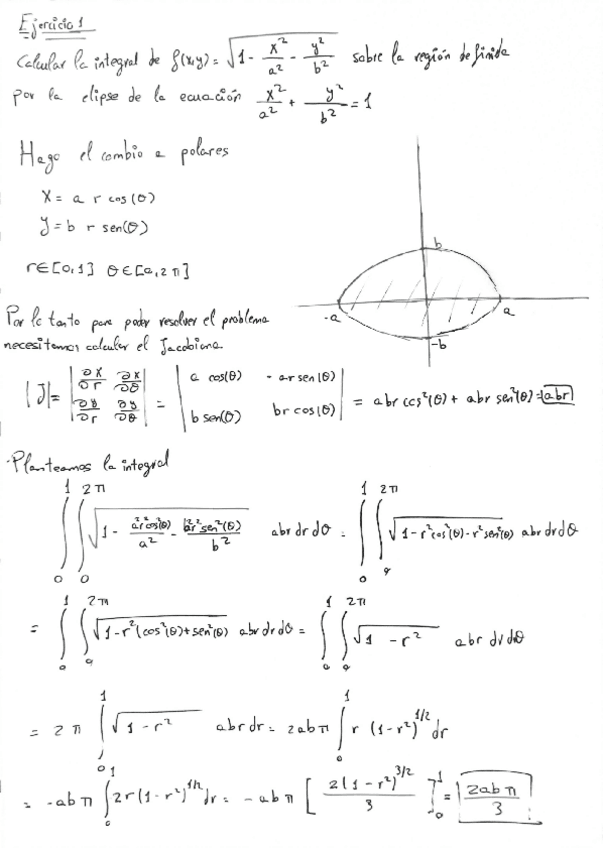 Ejercicio 1
Calcular la integral de f(x,y) = √(1 - x²/a² - y²/b²) sobre la región definida
por la elipse de la ecuación x²/a² + y²/b² = 1
Hago el cambio a polares
x = a r cos(θ)
y = b r sen(θ)
r ∈ [0,1] θ ∈ [0,2π]
b
-a a
-b
Por lo tanto para poder resolver el problema
necesitamos calcular el Jacobiano
|J| = |∂x/∂r ∂x/∂θ; ∂y/∂r ∂y/∂θ| = |a cos(θ) -ar sen(θ); b sen(θ) br cos(θ)| = abr cos²(θ) + abr sen²(θ) = abr
Planteamos la integral
∫₀¹ ∫₀^2π √(1 - a²r²cos²(θ)/a² - b²r²sen²(θ)/b²) abr dr dθ = ∫₀¹ ∫₀^2π √(1 - r²cos²(θ) - r²sen²(θ)) abr dr dθ
= ∫₀¹ ∫₀^2π √(1 - r²(cos²(θ) + sen²(θ))) abr dr dθ = ∫₀¹ ∫₀^2π √(1 - r²) abr dr dθ
= 2π ∫₀¹ √(1 - r²) abr dr = 2abπ ∫₀¹ r (1 - r²)^1/2 dr
= -abπ ∫₀¹ 2r (1 - r²)^1/2 dr = -abπ [2(1 - r²)^3/2 / 3]₀¹ = 2abπ/3